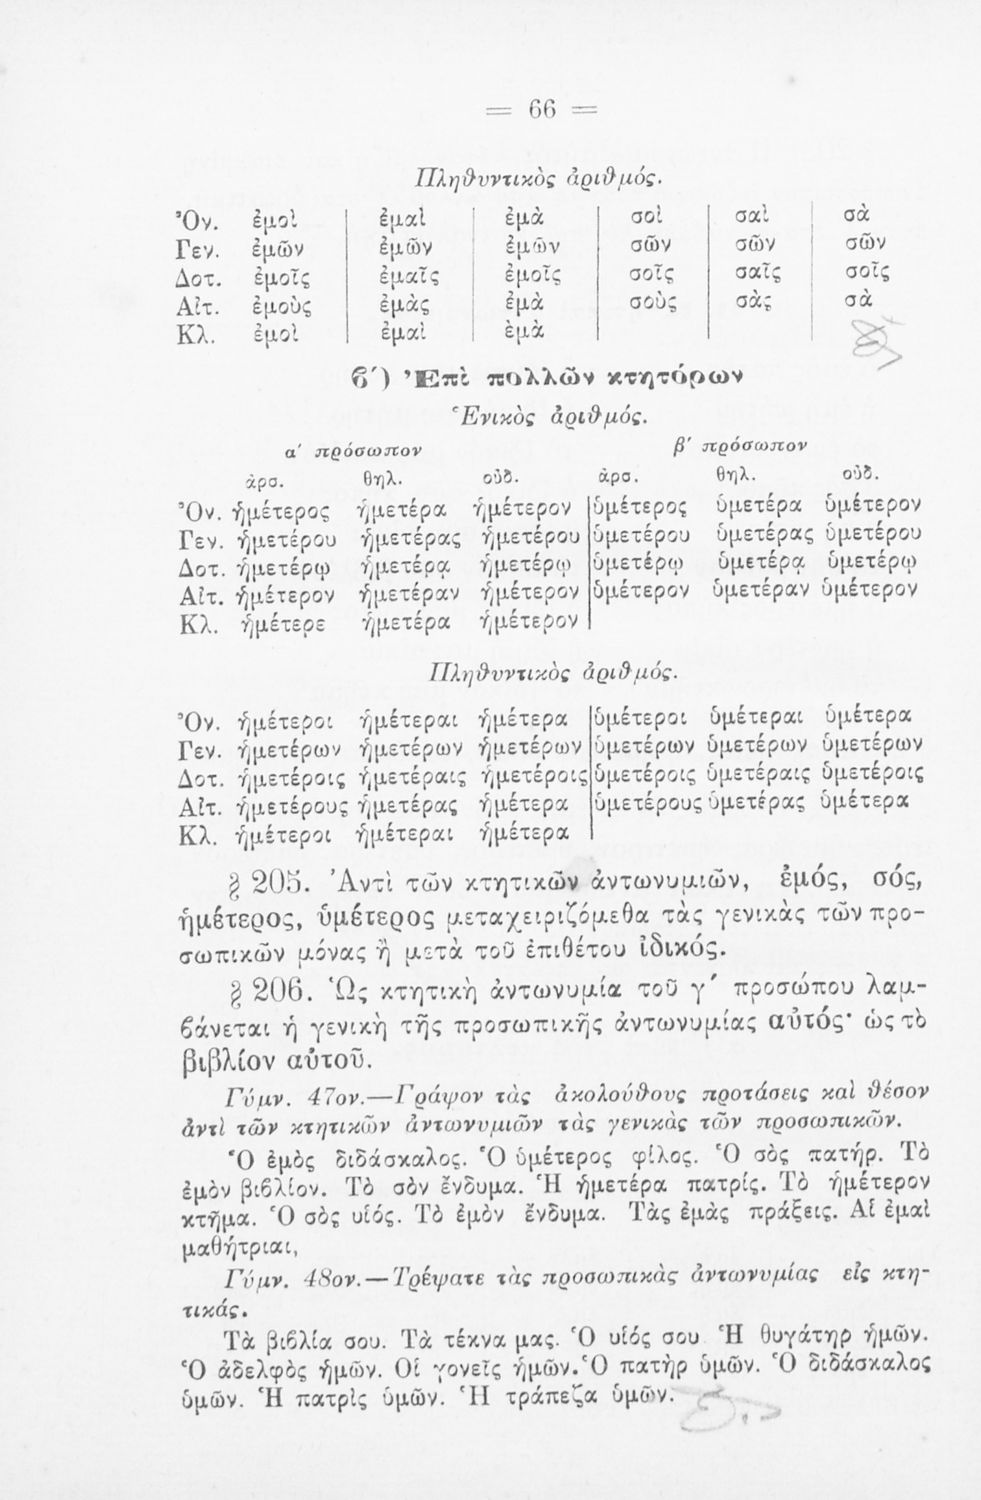 = 66 =
Πληθυντικὸς ἀριθμός.
Ὀν. ἐμοὶ ἐμαὶ ἐμὰ σοὶ σαὶ σὰ
Γεν. ἐμῶν ἐμῶν ἐμῶν σῶν σῶν σῶν
Δοτ. ἐμοῖς ἐμαῖς ἐμοῖς σοῖς σαῖς σοῖς
Αἰτ. ἐμοὺς ἐμὰς ἐμὰ σοὺς σὰς σὰ
Κλ. ἐμοὶ ἐμαὶ ἐμὰ
β΄) Ἐπὶ πολλῶν κτητόρων
Ἑνικὸς ἀριθμός.
α΄ πρόσωπον β΄ πρόσωπον
ἀρσ. θηλ. οὐδ. ἀρσ. θηλ. οὐδ.
Ὀν. ἡμέτερος ἡμετέρα ἡμέτερον ὑμέτερος ὑμετέρα ὑμέτερον
Γεν. ἡμετέρου ἡμετέρας ἡμετέρου ὑμετέρου ὑμετέρας ὑμετέρου
Δοτ. ἡμετέρῳ ἡμετέρᾳ ἡμετέρῳ ὑμετέρῳ ὑμετέρᾳ ὑμετέρῳ
Αἰτ. ἡμέτερον ἡμετέραν ἡμέτερον ὑμέτερον ὑμετέραν ὑμέτερον
Κλ. ἡμέτερε ἡμετέρα ἡμέτερον
Πληθυντικὸς ἀριθμός.
Ὀν. ἡμέτεροι ἡμέτεραι ἡμέτερα ὑμέτεροι ὑμέτεραι ὑμέτερα
Γεν. ἡμετέρων ἡμετέρων ἡμετέρων ὑμετέρων ὑμετέρων ὑμετέρων
Δοτ. ἡμετέροις ἡμετέραις ἡμετέροις ὑμετέροις ὑμετέραις ὑμετέροις
Αἰτ. ἡμετέρους ἡμετέρας ἡμέτερα ὑμετέρους ὑμετέρας ὑμέτερα
Κλ. ἡμέτεροι ἡμέτεραι ἡμέτερα
§ 205. Ἀντὶ τῶν κτητικῶν ἀντωνυμιῶν, ἐμός, σός,
ἡμέτερος, ὑμέτερος μεταχειριζόμεθα τὰς γενικὰς τῶν προ-
σωπικῶν μόνας ἢ μετὰ τοῦ ἐπιθέτου ἰδικός.
§ 206. Ὡς κτητικὴ ἀντωνυμία τοῦ γ΄ προσώπου λαμ-
βάνεται ἡ γενικὴ τῆς προσωπικῆς ἀντωνυμίας αὐτός· ὡς τὸ
βιβλίον αὐτοῦ.
Γύμν. 47ον.—Γράψον τὰς ἀκολούθους προτάσεις καὶ θέσον
ἀντὶ τῶν κτητικῶν ἀντωνυμιῶν τὰς γενικὰς τῶν προσωπικῶν.
Ὁ ἐμὸς διδάσκαλος. Ὁ ὑμέτερος φίλος. Ὁ σὸς πατήρ. Τὸ
ἐμὸν βιβλίον. Τὸ σὸν ἔνδυμα. Ἡ ἡμετέρα πατρίς. Τὸ ἡμέτερον
κτῆμα. Ὁ σὸς υἱός. Τὸ ἐμὸν ἔνδυμα. Τὰς ἐμὰς πράξεις. Αἱ ἐμαὶ
μαθήτριαι,
Γύμν. 48ον.—Τρέψατε τὰς προσωπικὰς ἀντωνυμίας εἰς κτη-
τικάς.
Τὰ βιβλία σου. Τὰ τέκνα μας. Ὁ υἱός σου Ἡ θυγάτηρ ἡμῶν.
Ὁ ἀδελφὸς ἡμῶν. Οἱ γονεῖς ἡμῶν. Ὁ πατὴρ ὑμῶν. Ὁ διδάσκαλος
ὑμῶν. Ἡ πατρὶς ὑμῶν. Ἡ τράπεζα ὑμῶν.